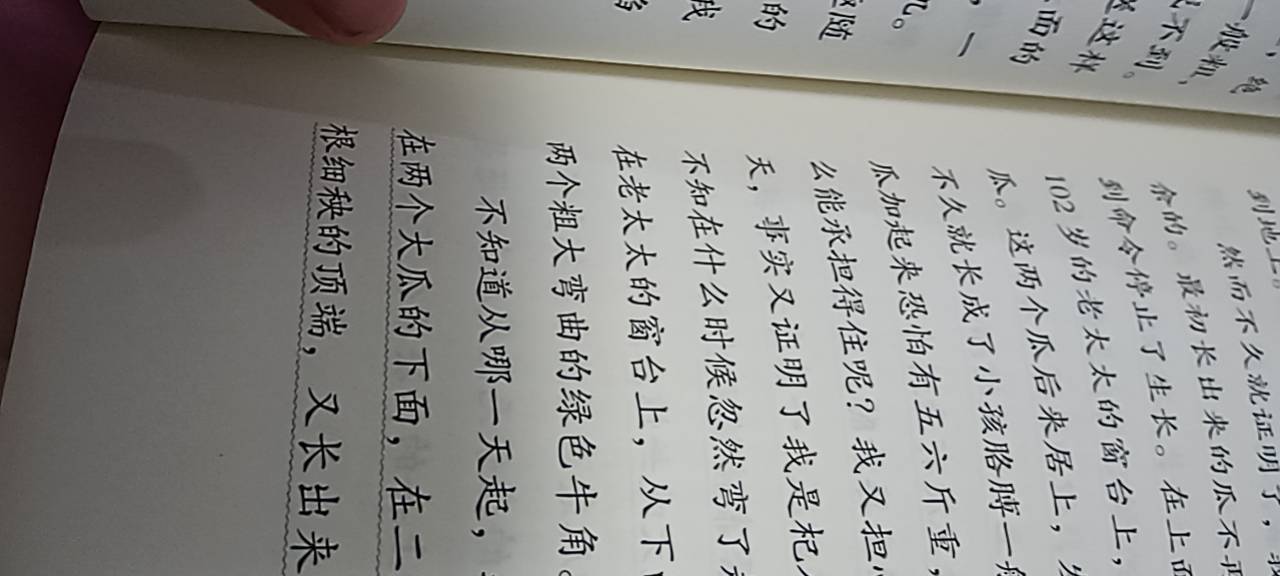 一般粗，
不到，
这样
面的
，一
随
的
我
到地上。
然而不久就证明了，
余的。最初长出来的瓜不再
到命令停止了生长。在上面
102岁的老太太的窗台上，
瓜。这两个瓜后来居上，
不久就长成了小孩胳膊一般
瓜加起来恐怕有五六斤重，
么能承担得住呢？我又担心
天，事实又证明了我是杞人
不知在什么时候忽然弯了
在老太太的窗台上，从下
两个粗大弯曲的绿色牛角。
不知道从哪一天起，
在两个大瓜的下面，在二
根细秧的顶端，又长出来